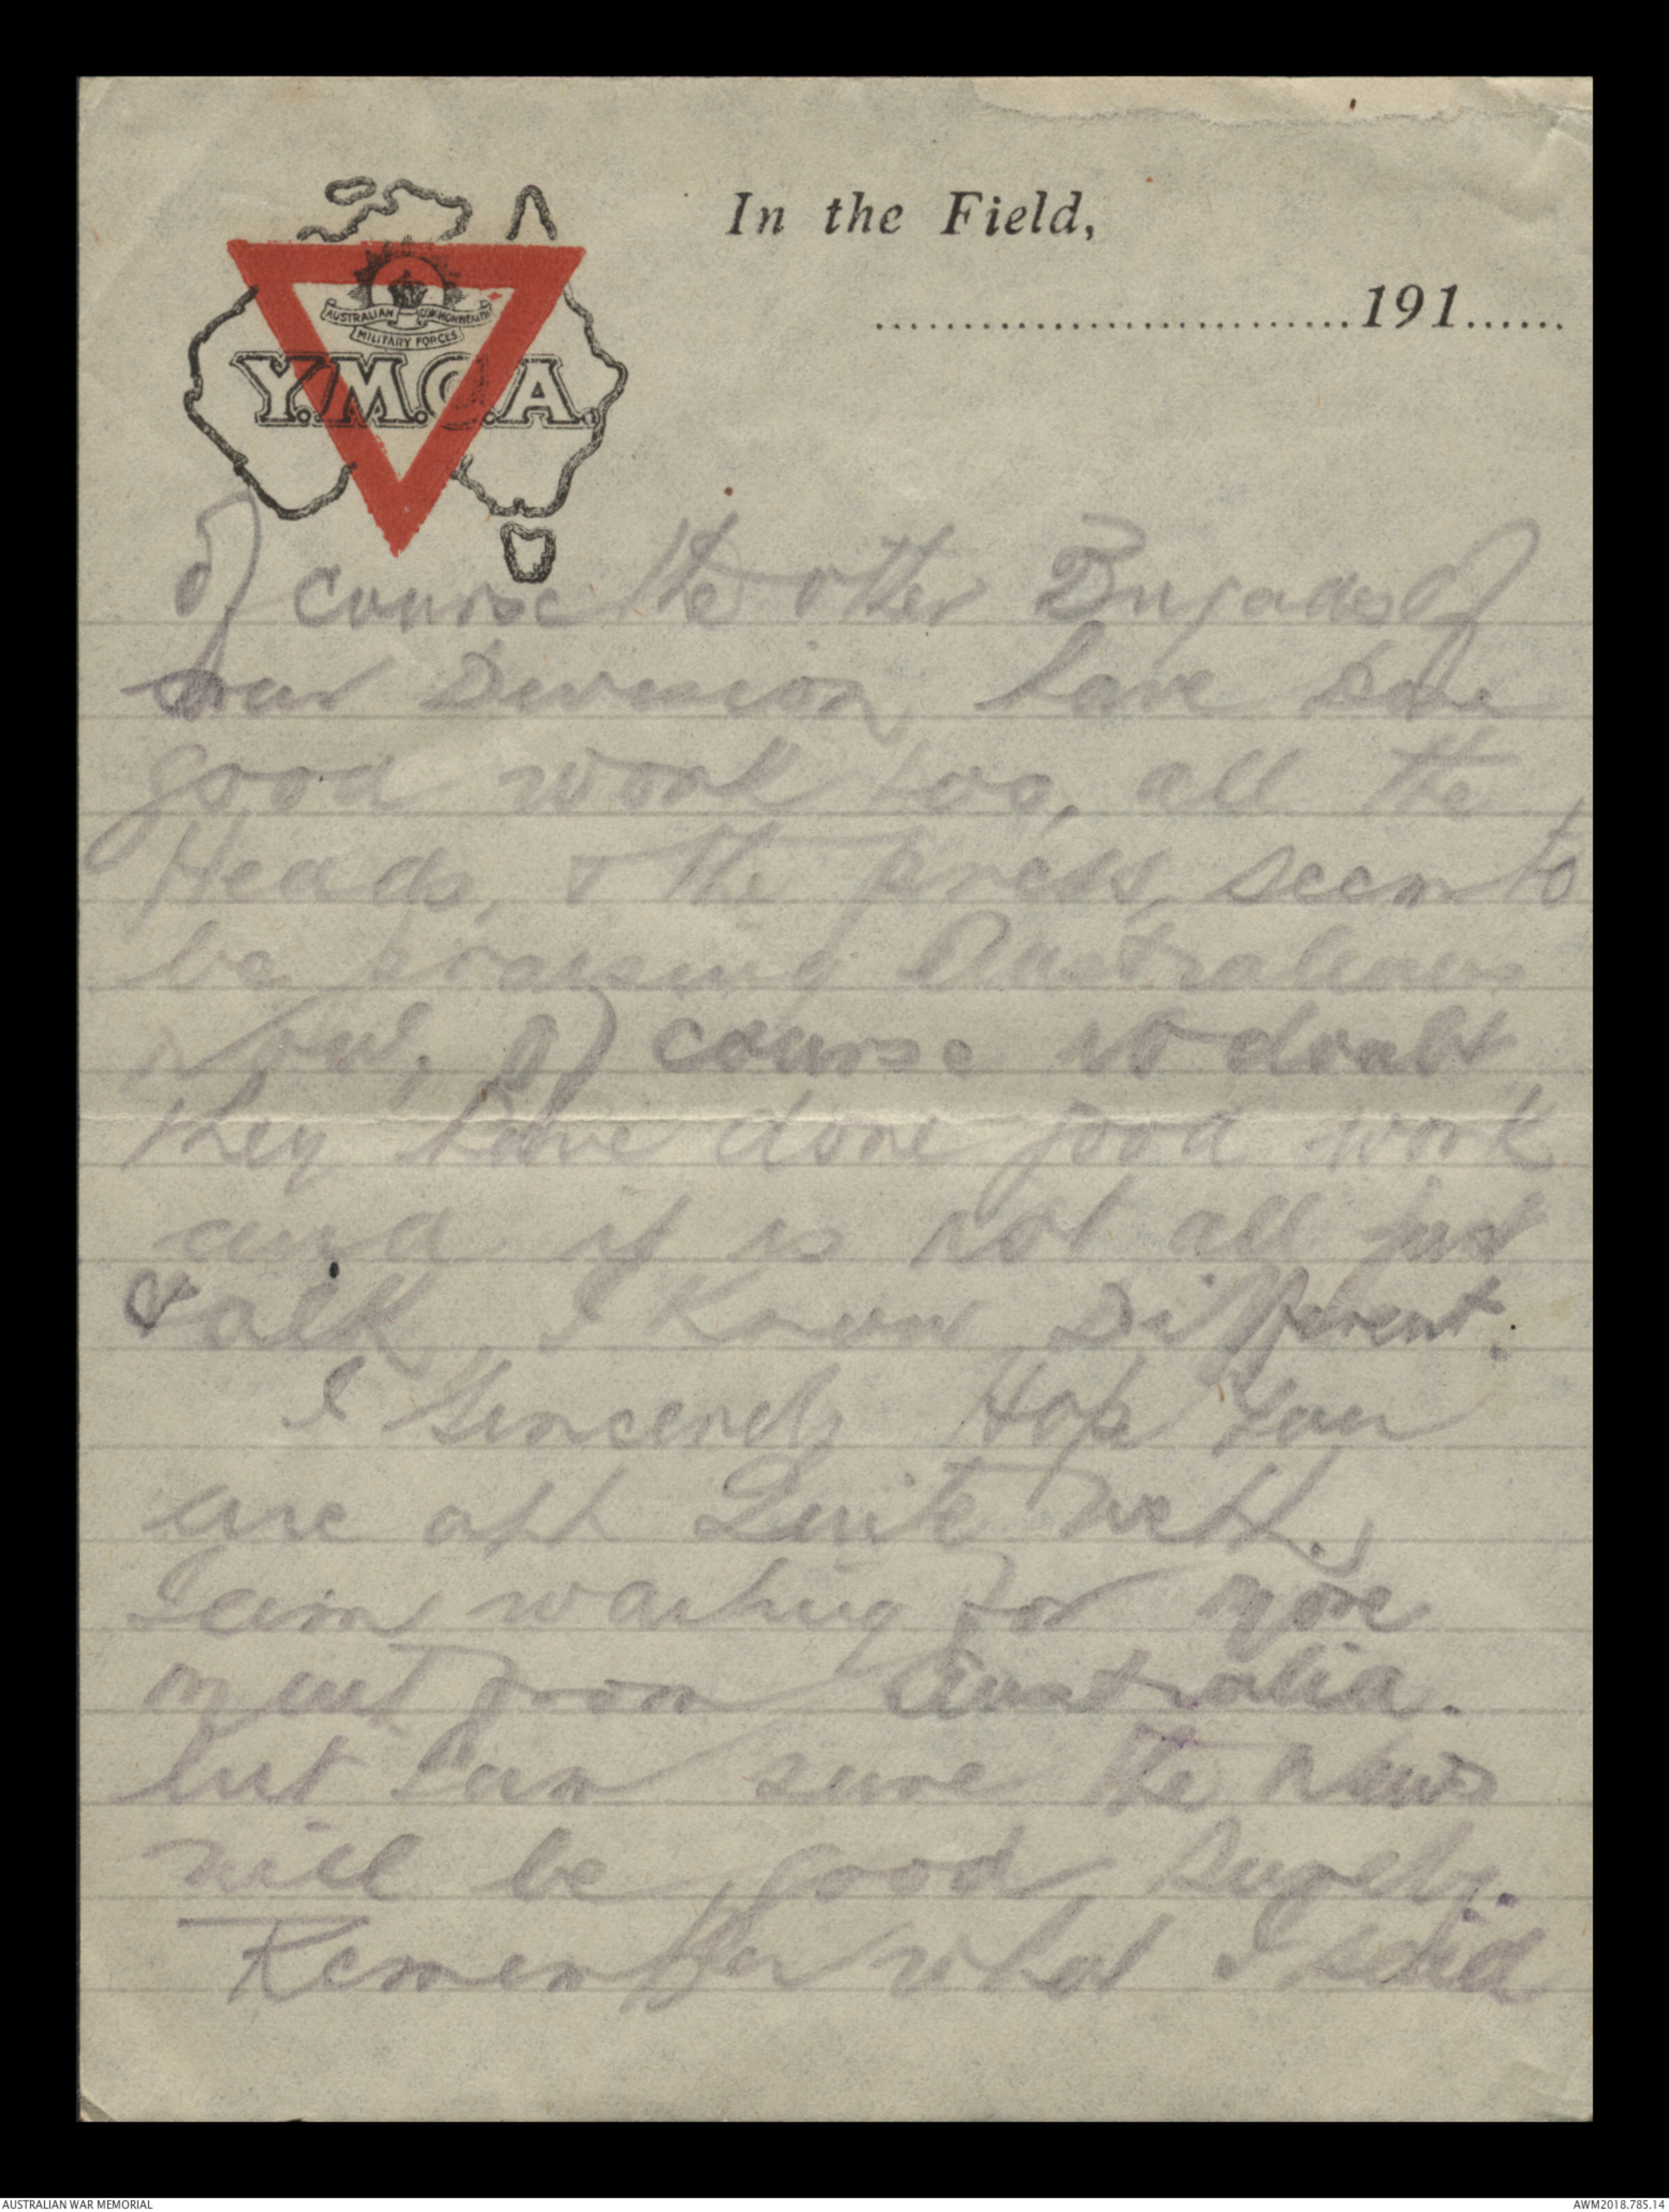 In the Field,
191
AUSTRALIAN COMMONWEALTH
MILITARY FORCES
Y.M.C.A.
of course the other Brigades of
our Division have done
good work too, all the
Heads, & the press, seem to
be praising Australians
Now, of course no doubt
they have done good work
and it is not all just
talk, I know Different.
I Sincerely Hope You
are all Quite Well.
I am waiting for more
from Australia.
but I am sure the news
will be good surely.
Remember what I said
AUSTRALIAN WAR MEMORIAL
AWM2018.785.14